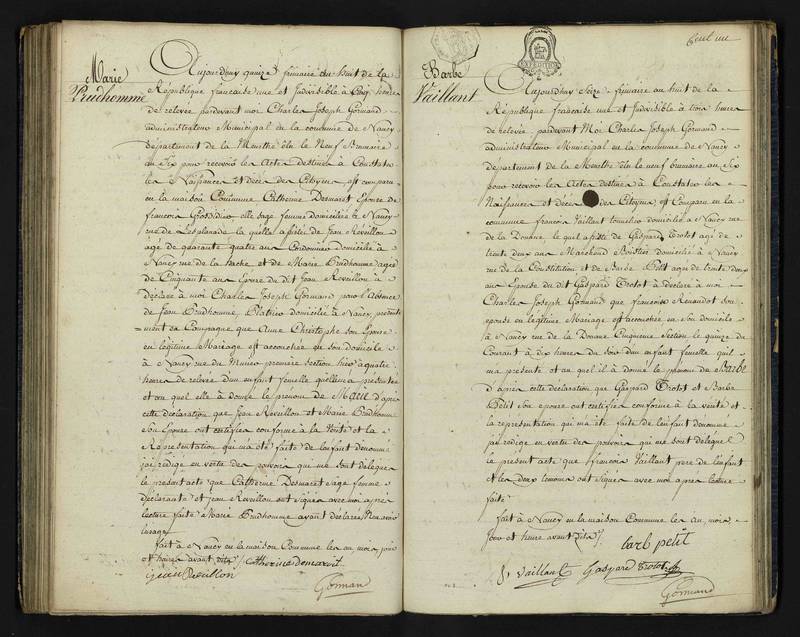 Marie
Prudhomme
Aujourdhuy quinze frimaire an huit de la
République française une et Indivisible à Cinq heures
de relevée pardevant moi Charles Joseph Gormand
administrateur Municipal de la commune de Nancy
département de la Meurthe élu le Neuf Brumaire
an Six pour recevoir les Actes destinés à Constater
les Naissances et décès des Citoyens, est comparu
en la maison Commune Catherine Demaret Epouse de
françois sage femme domiciliée à Nancy
rue de Lesplanade la quelle assistée de Jean Revillon
agé de quarante quatre ans Cordonnier domicilié à
Nancy rue de la hache et de Marie Prudhomme agée
de Cinquante ans Epouse du dit Jean Revillon à
déclaré à moi Charles Joseph Gormand pour l'absence
de Jean Prudhomme, Platrier domicilié à Nancy
en Campagne que Anne Christophe son Epouse
en légitime Mariage est accouchée en son domicile
à Nancy rue du première section hier à quatre
heures de relevée d'un enfant femelle quelle ma présentée
et au quel elle à donné le prenom de Marie d'après
cette déclaration que Jean Revillon et Marie Prudhomme
son Epouse ont certifiée conforme à la vérité et la
Représentation qui m'a été faite de lenfant denommé
jai rédigé en vertu des pouvoirs qui me sont délégués
le présent acte que Catherine Demaret sage femme
déclarante et jean Revillon ont signés avec moi après
lecture faite Marie Prudhomme ayant déclarée
lusage
fait à Nancy en la maison Commune les an, mois, jour
et heures avant dits
Catherine demaret
jean Revillon
Gormand
Cent un
Barbe
Vaillant
Aujourdhuy Seize frimaire an huit de la
République française une et Indivisible à trois heures
de relevée, pardevant Moi Charles Joseph Gormand
administrateur Municipal de la commune de Nancy
département de la Meurthe élu le neuf brumaire an Six
pour recevoir les Actes destinés à Constater les
Naissances et décès des Citoyens, est Comparu en la
commune françois Vaillant tonnelier domicilié à Nancy rue
de la Douane, le quel assisté de Gaspard Trotot agé de
trente deux ans Marchand domicilié à Nancy
rue de la Constitution et de Barbe Petit agée de trente deux
ans Epouse du dit Gaspard Trotot à déclaré à moi
Charles Joseph Gormand que françoise Renaudot son
epouse en légitime Mariage est accouchée en son domicile
à Nancy rue de la Douane Cinquieme Section le quinze du
Courant à dix heures du Soir d'un enfant femelle quil
ma présenté et au quel il à donné le prenom de Barbe
d'après cette déclaration que Gaspard Trotot et Barbe
Petit son epouse ont certifiée conforme à la vérité et
la representation qui m'a été faite de lenfant denommé
jai redigé en vertu des pouvoirs qui me sont delegués
le présent acte que françois Vaillant pere de l'enfant
et les deux temoins ont signés avec moi apres lecture
faite
fait à Nancy en la maison Commune les an, mois,
jour et heure avant dits
barb petit
fr Vaillant
Gaspard Trotot
Gormand